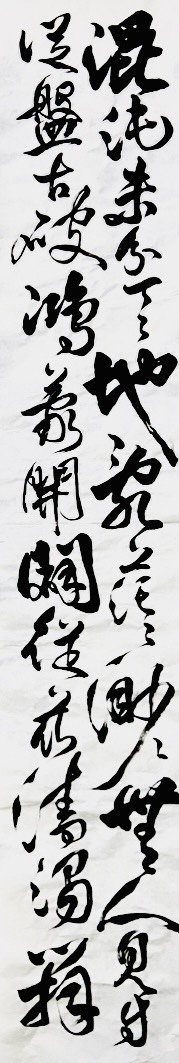 混沌未分天地亂茫々渺々無人見自
從盤古破鴻蒙開闢從茲清濁辨